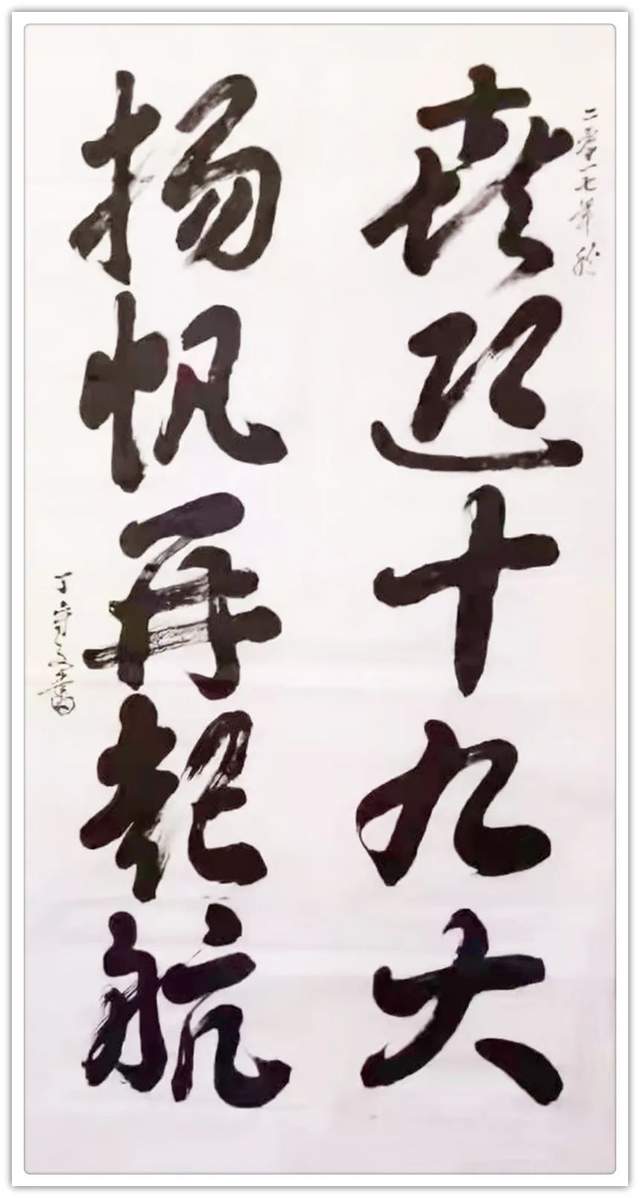 二零一七年秋
喜迎十九大
扬帆再起航